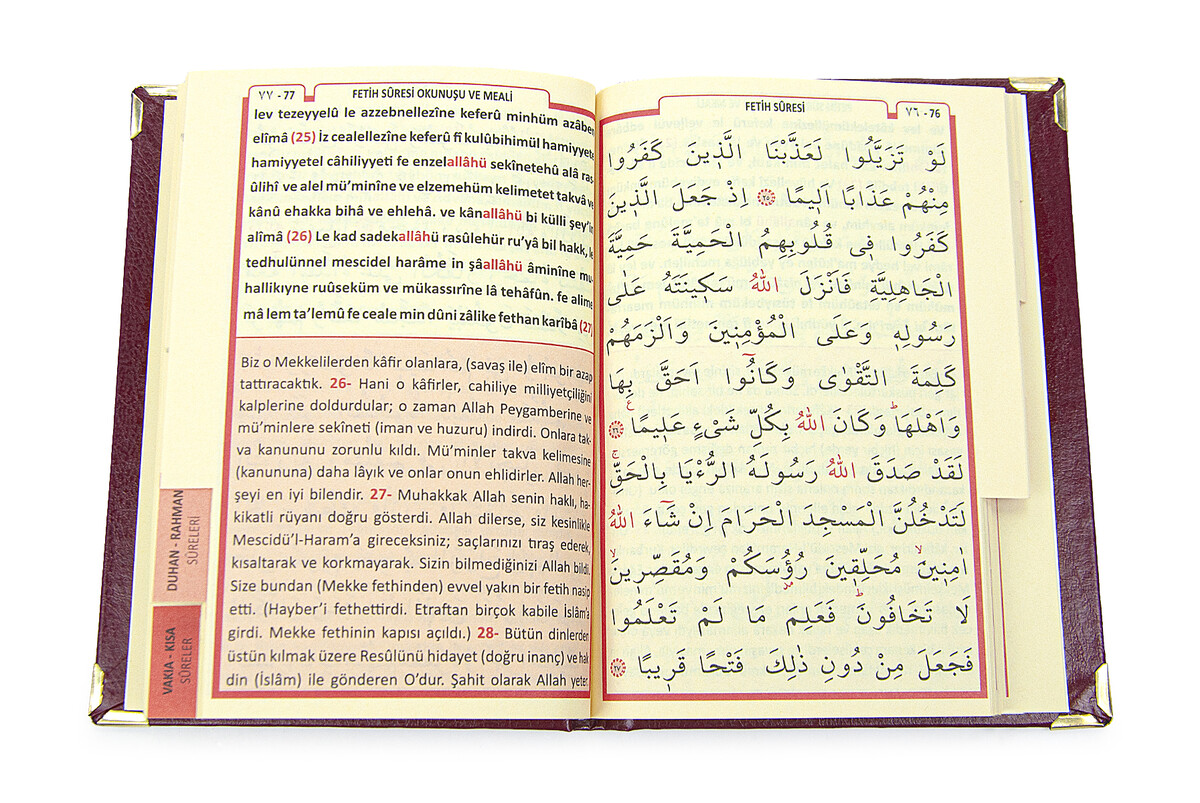 ٧٧ - 77
FETİH SÛRESİ OKUNUŞU VE MEALİ
lev tezeyyelû le azzebnellezîne keferû minhüm azâben
elîmâ (25) İz cealellezîne keferû fî kulûbihimül hamiyyete
hamiyyetel câhiliyyeti fe enzelallâhü sekînetehû alâ ras
ûlihî ve alel mü’minîne ve elzemehüm kelimetet takvâ ve
kânû ehakka bihâ ve ehlehâ. ve kânallâhü bi külli şey’in
alîmâ (26) Le kad sadekallâhü rasûlehür ru’yâ bil hakk, le
tedhulünnel mescidel harâme in şâallâhü âminîne mu-
hallikıyne ruûseküm ve mükassırîne lâ tehâfûn. fe alime
mâ lem ta’lemû fe ceale min dûni zâlike fethan karîbâ (27)
Biz o Mekkelilerden kâfir olanlara, (savaş ile) elîm bir azap
tattıracaktık. 26- Hani o kâfirler, cahiliye milliyetçiliğini
kalplerine doldurdular; o zaman Allah Peygamberine ve
mü’minlere sekîneti (iman ve huzuru) indirdi. Onlara tak-
va kanununu zorunlu kıldı. Mü’minler takva kelimesine
(kanununa) daha lâyık ve onlar onun ehlidirler. Allah her-
şeyi en iyi bilendir. 27- Muhakkak Allah senin haklı, ha-
kikatli rüyanı doğru gösterdi. Allah dilerse, siz kesinlikle
Mescidü’l-Haram’a gireceksiniz; saçlarınızı tıraş ederek,
kısaltarak ve korkmayarak. Sizin bilmediğinizi Allah bildi.
Size bundan (Mekke fethinden) evvel yakın bir fetih nasip
etti. (Hayber’i fethettirdi. Etraftan birçok kabile İslâm’a
girdi. Mekke fethinin kapısı açıldı.) 28- Bütün dinlerden
üstün kılmak üzere Resûlünü hidayet (doğru inanç) ve hak
din (İslâm) ile gönderen O’dur. Şahit olarak Allah yeter.
DUHAN - RAHMAN
SÛRELERİ
VAKIA - KISA
SÛRELER
FETİH SÛRESİ
٧٦ - 76
لَوْ تَزَيَّلُوا لَعَذَّبْنَا الَّذ۪ينَ كَفَرُوا
مِنْهُمْ عَذَابًا اَل۪يمًا ﴿٢٥﴾ اِذْ جَعَلَ الَّذ۪ينَ
كَفَرُوا ف۪ى قُلُوبِهِمُ الْحَمِيَّةَ حَمِيَّةَ
الْجَاهِلِيَّةِ فَاَنْزَلَ اللّٰهُ سَك۪ينَتَهُ عَلٰى
رَسُولِه۪ وَعَلَى الْمُؤْمِن۪ينَ وَاَلْزَمَهُمْ
كَلِمَةَ التَّقْوٰى وَكَانُٓوا اَحَقَّ بِهَا
وَاَهْلَهَاۜ وَكَانَ اللّٰهُ بِكُلِّ شَىْءٍ عَل۪يمًا ﴿٢٦﴾
لَقَدْ صَدَقَ اللّٰهُ رَسُولَهُ الرُّءْيَا بِالْحَقِّۚ
لَتَدْخُلُنَّ الْمَسْجِدَ الْحَرَامَ اِنْ شَٓاءَ اللّٰهُ
اٰمِن۪ينَۙ مُحَلِّق۪ينَ رُؤُسَكُمْ وَمُقَصِّر۪ينَۙ
لَا تَخَافُونَۜ فَعَلِمَ مَا لَمْ تَعْلَمُوا
فَجَعَلَ مِنْ دُونِ ذٰلِكَ فَتْحًا قَر۪يبًا ﴿٢٧﴾